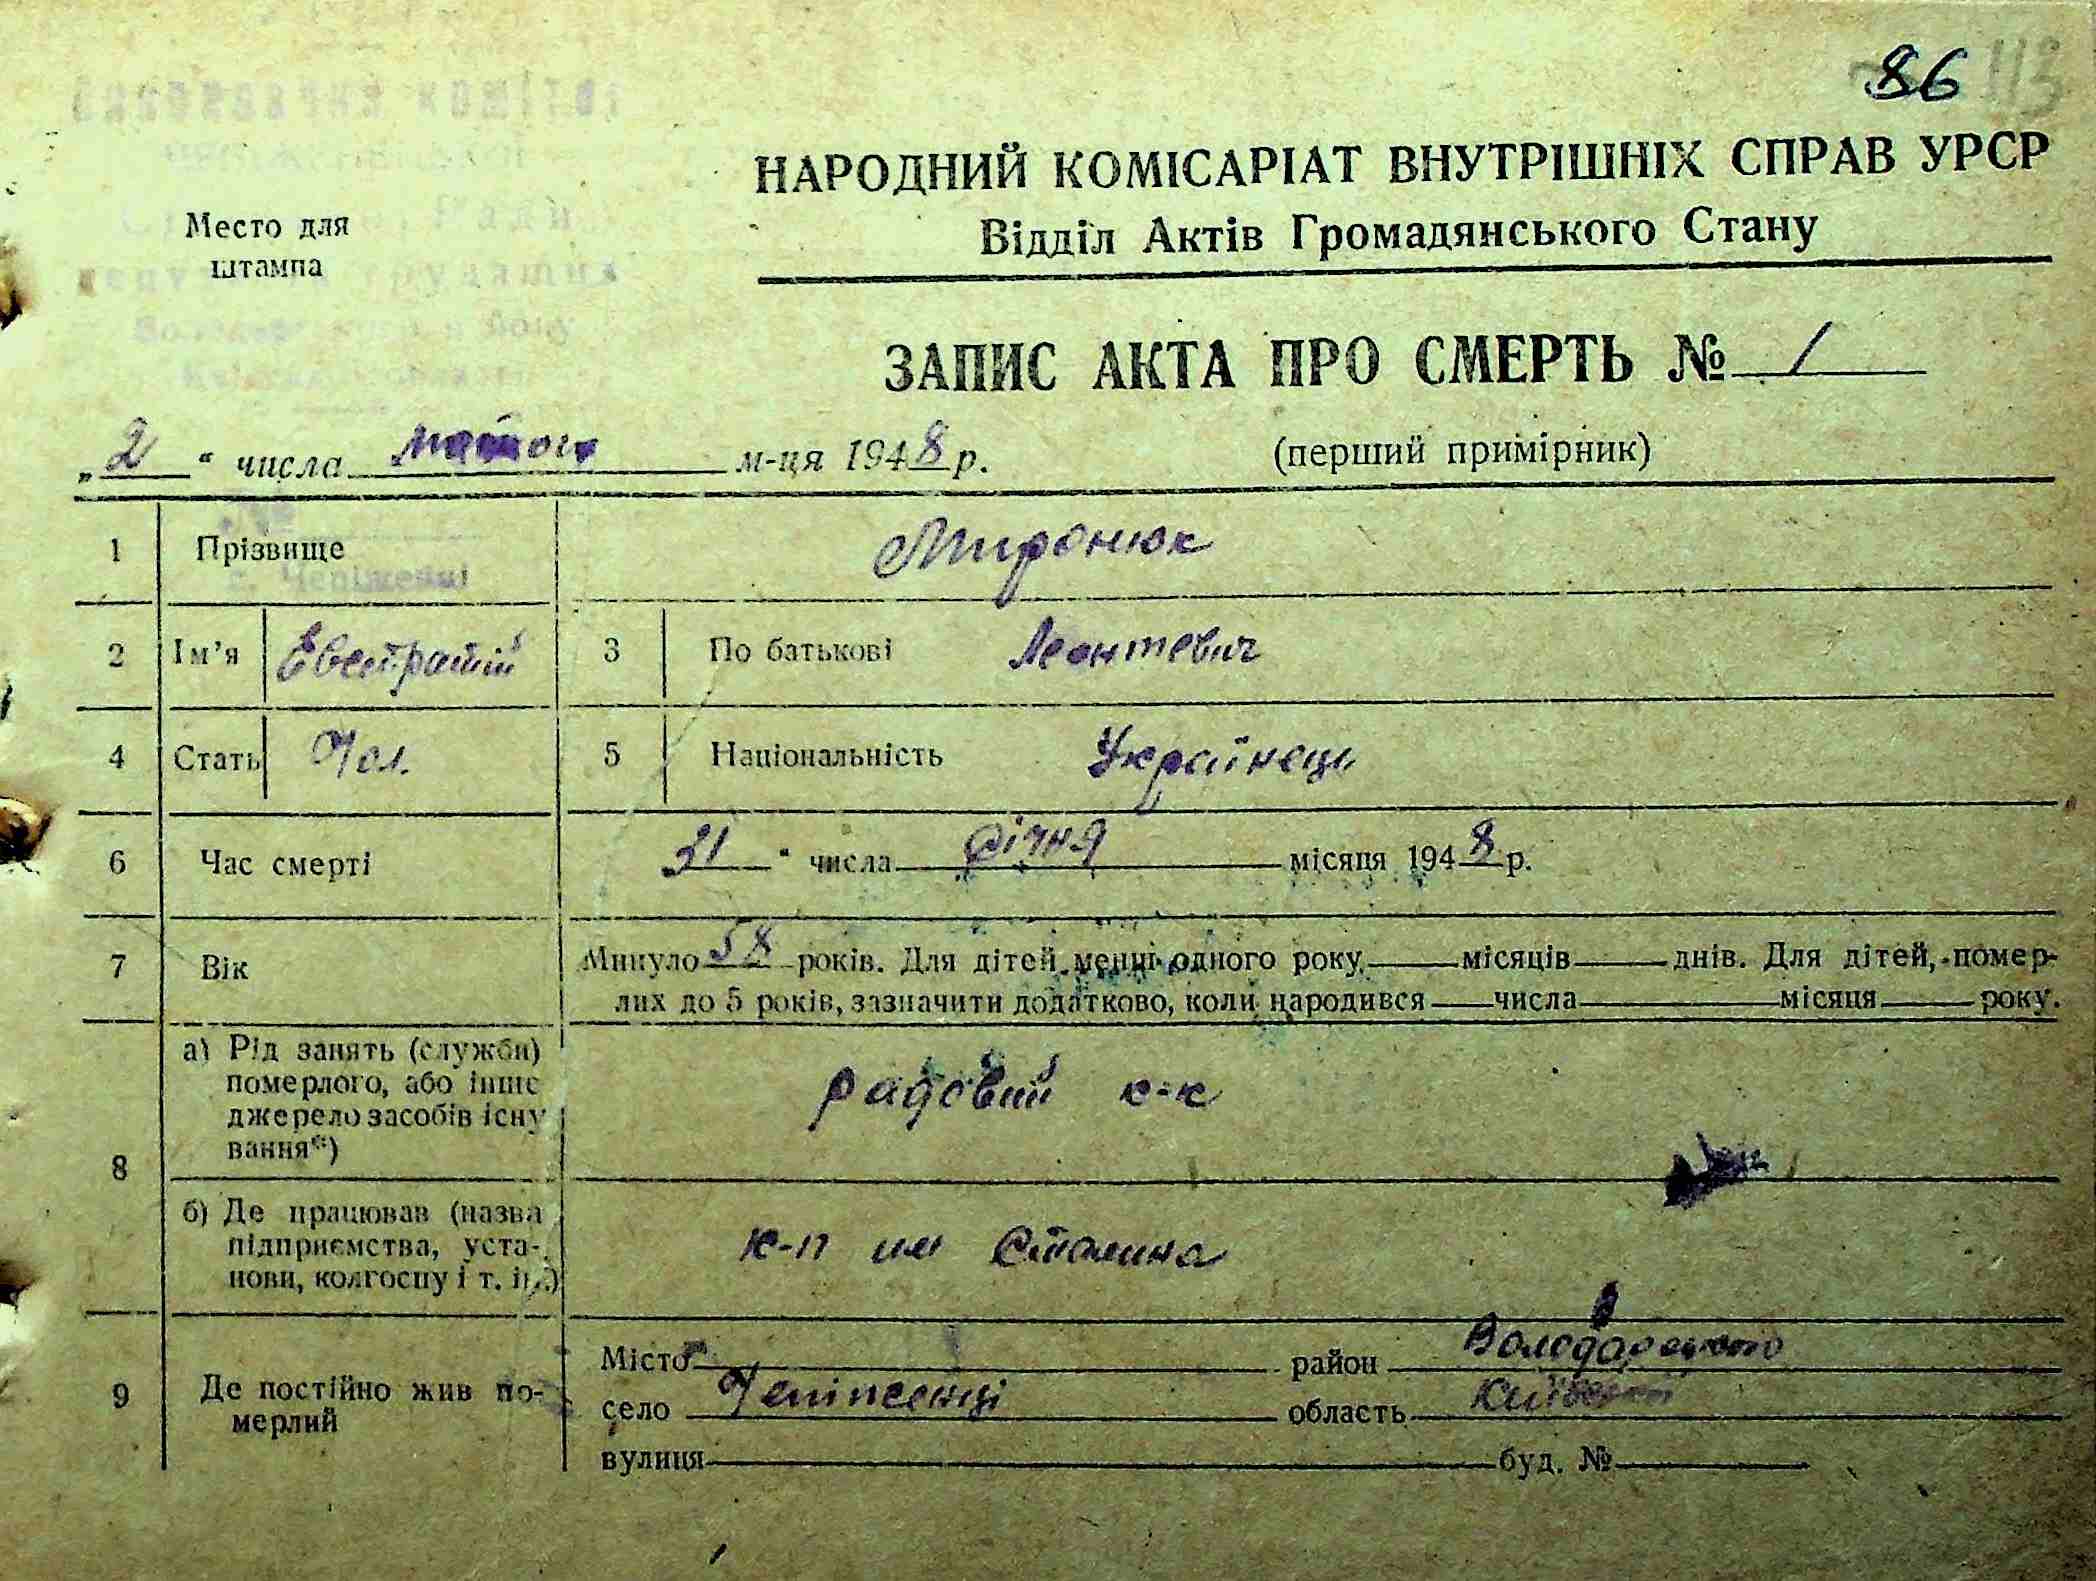 86 113
виконавчий комітет
Ради
депутатів трудящих
НАРОДНИЙ КОМІСАРІАТ ВНУТРІШНІХ СПРАВ УРСР
Відділ Актів Громадянського Стану
Место для
штампа
ЗАПИС АКТА ПРО СМЕРТЬ № 1
(перший примірник)
„2“ числа лютого м-ця 1948 р.
с. Чепіженці
1 Прізвище Миронюк
2 Ім’я Евстратій 3 По батькові Леонтевич
4 Стать Чол. 5 Національність Українець
6 Час смерті 31 “ числа Січня місяця 1948 р.
7 Вік Минуло 58 років. Для дітей менш одного року — місяців — днів. Для дітей, помер-
лих до 5 років, зазначити додатково, коли народився — числа — місяця — року.
8 а) Рід занять (служби)
померлого, або інше
джерело засобів існу
вання*) радовий к-к
б) Де працював (назва
підприємства, уста-
нови, колгоспу і т. ін.) к-п им Сталина
9 Де постійно жив по-
мерлий
Місто район Володарського
село Чепіженці область Київської
вулиця буд. №